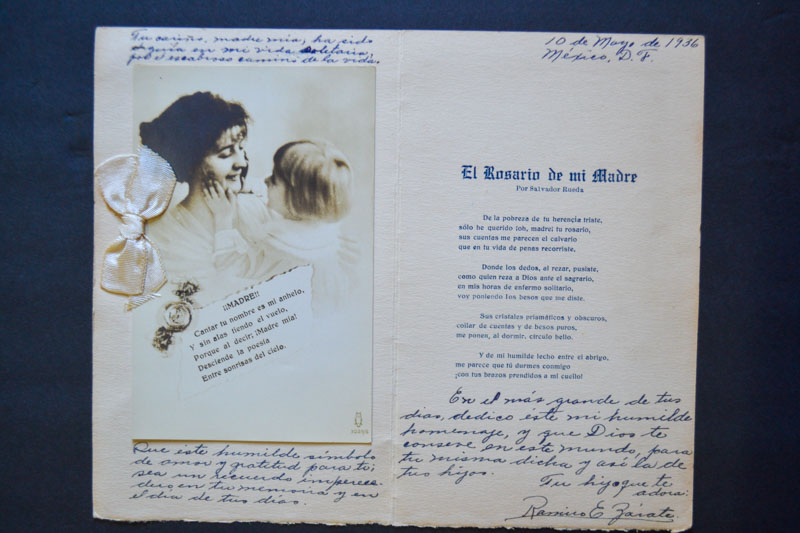 Tu cariño, madre mía, ha sido
el guía en mi vida solitaria,
por el escabroso camino de la vida.
¡¡MADRE!!
Cantar tu nombre es mi anhelo,
Y sin alas tiendo el vuelo,
Porque al decir; ¡Madre mía!
Desciende la poesía
Entre sonrisas del cielo.
Que éste humilde símbolo
de amor y gratitud para ti;
sea un recuerdo imperece-
dero en tu memoria y en
el día de tus días.
10 de Mayo de 1936
México, D. F.
El Rosario de mi Madre
Por Salvador Rueda
De la pobreza de tu herencia triste,
sólo he querido ¡oh, madre! tu rosario,
sus cuentas me parecen el calvario
que en tu vida de penas recorriste.
Donde los dedos, al rezar, pusiste,
como quien reza a Dios ante el sagrario,
en mis horas de enfermo solitario,
voy poniendo los besos que me diste.
Sus cristales prismáticos y obscuros,
collar de cuentas y de besos puros,
me ponen, al dormir, círculo bello.
Y de mi humilde lecho entre el abrigo,
me parece que tú duermes conmigo
¡con tus brazos prendidos a mi cuello!
En el más grande de tus
días, dedico éste mi humilde
homenaje, y que Dios te
conserve en este mundo, para
tu misma dicha y así la de
tus hijos.
Tu hijo que te
adora:
Ramiro E. Zárate.